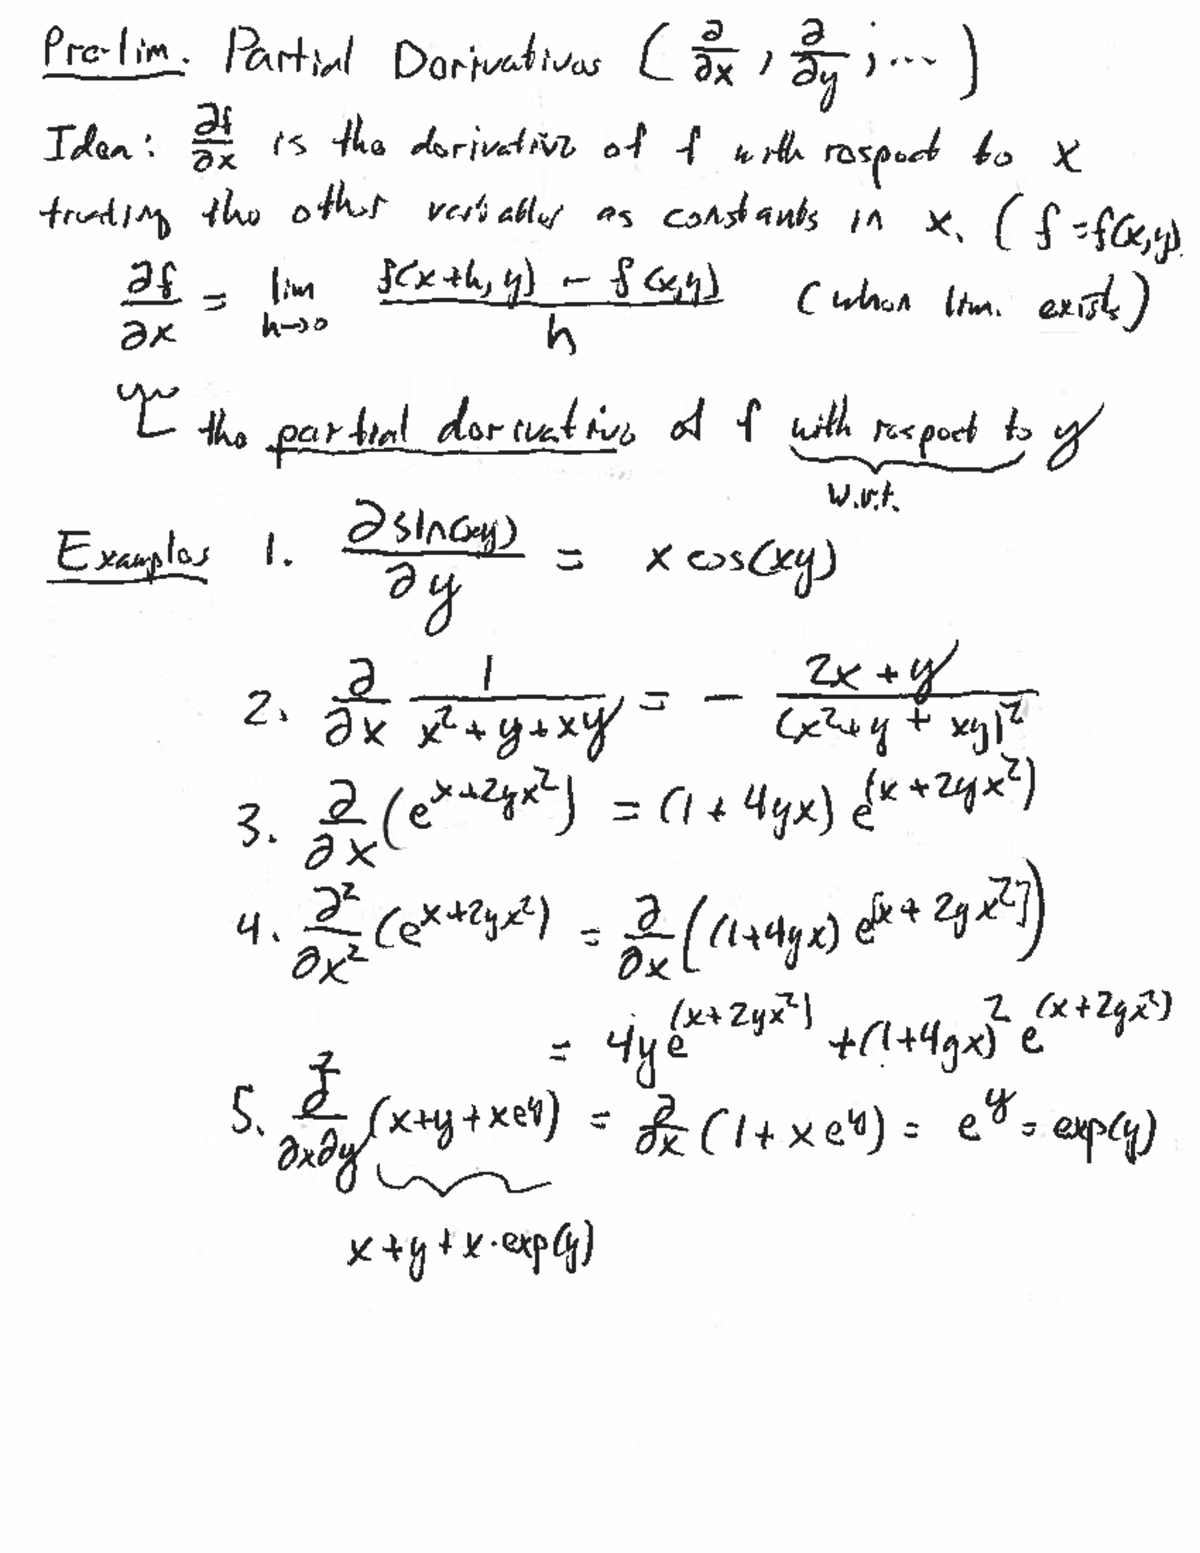 Pre-lim. Partial Derivatives ( ∂/∂x , ∂/∂y , ... )
Idea: ∂f/∂x is the derivative of f with respect to x
treating the other variables as constants in x. ( f = f(x,y)
∂f/∂x = lim h→0 (f(x+h, y) − f(x,y))/h (when lim. exists)
the partial derivative of f with respect to y
w.r.t.
Examples 1. ∂sin(xy)/∂y = x cos(xy)
2. ∂/∂x 1/(x²+y+xy) = − (2x+y)/(x²+y+xy)²
3. ∂/∂x (e^(x+2yx²)) = (1+4yx) e^(x+2yx²)
4. ∂²/∂x² (e^(x+2yx²)) = ∂/∂x ((1+4yx) e^[x+2yx²])
= 4ye^(x+2yx²) + (1+4yx)² e^(x+2yx²)
5. ∂²/∂x∂y (x+y+xe^y) = ∂/∂x (1+xe^y) = e^y = exp(y)
x+y+x·exp(y)